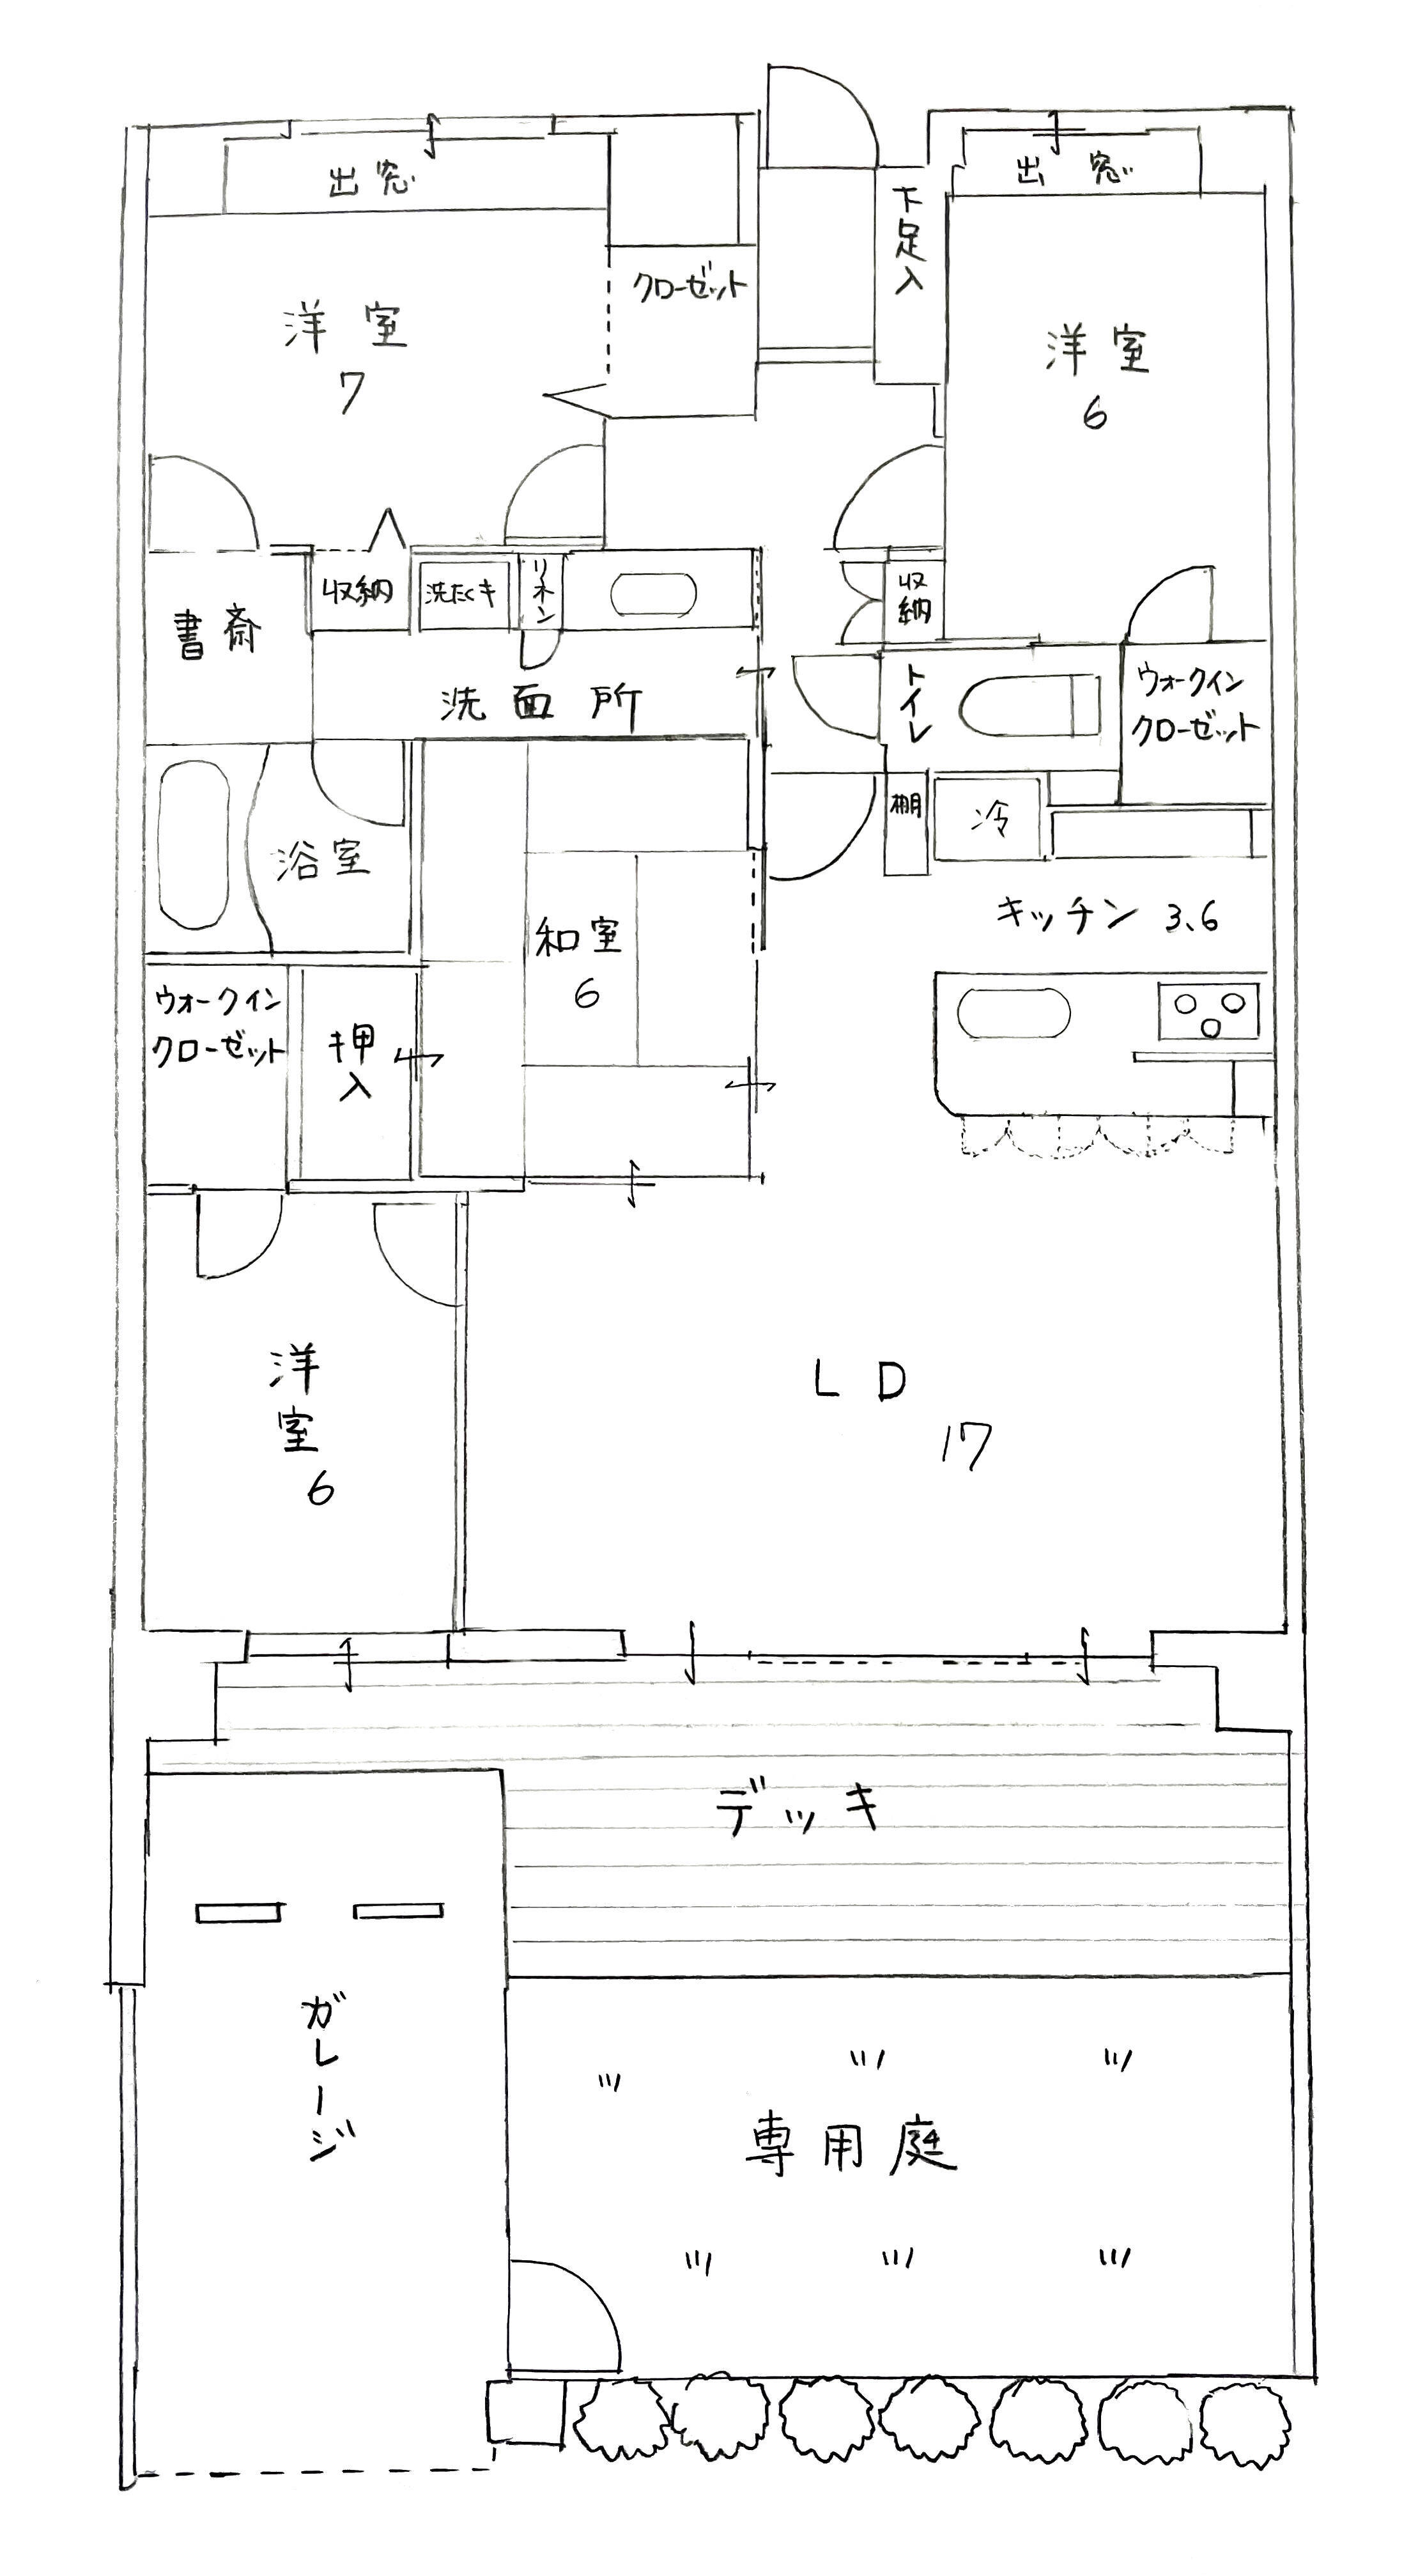 出窓
出窓
下足入
クローゼット
洋室
7
洋室
6
書斎
収納
洗たくキ
リネン
収納
洗面所
トイレ
ウォークイン
クローゼット
浴室
棚
冷
和室
6
キッチン 3.6
ウォークイン
クローゼット
押入
洋室
6
LD
17
デッキ
ガレージ
専用庭